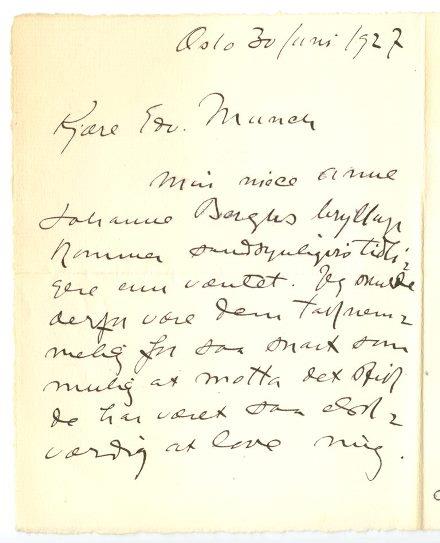 Oslo 30 Juni 1927
Kjære Edv. Munch
Min niece Anne
Johanne Berghs bryllup
kommer sandsynligvis tidli=
gere enn ventet. Jeg skulde
derfor være dem taknem=
melig for saa snart som
mulig at motta det
de har været saa elsk=
værdig at love mig.